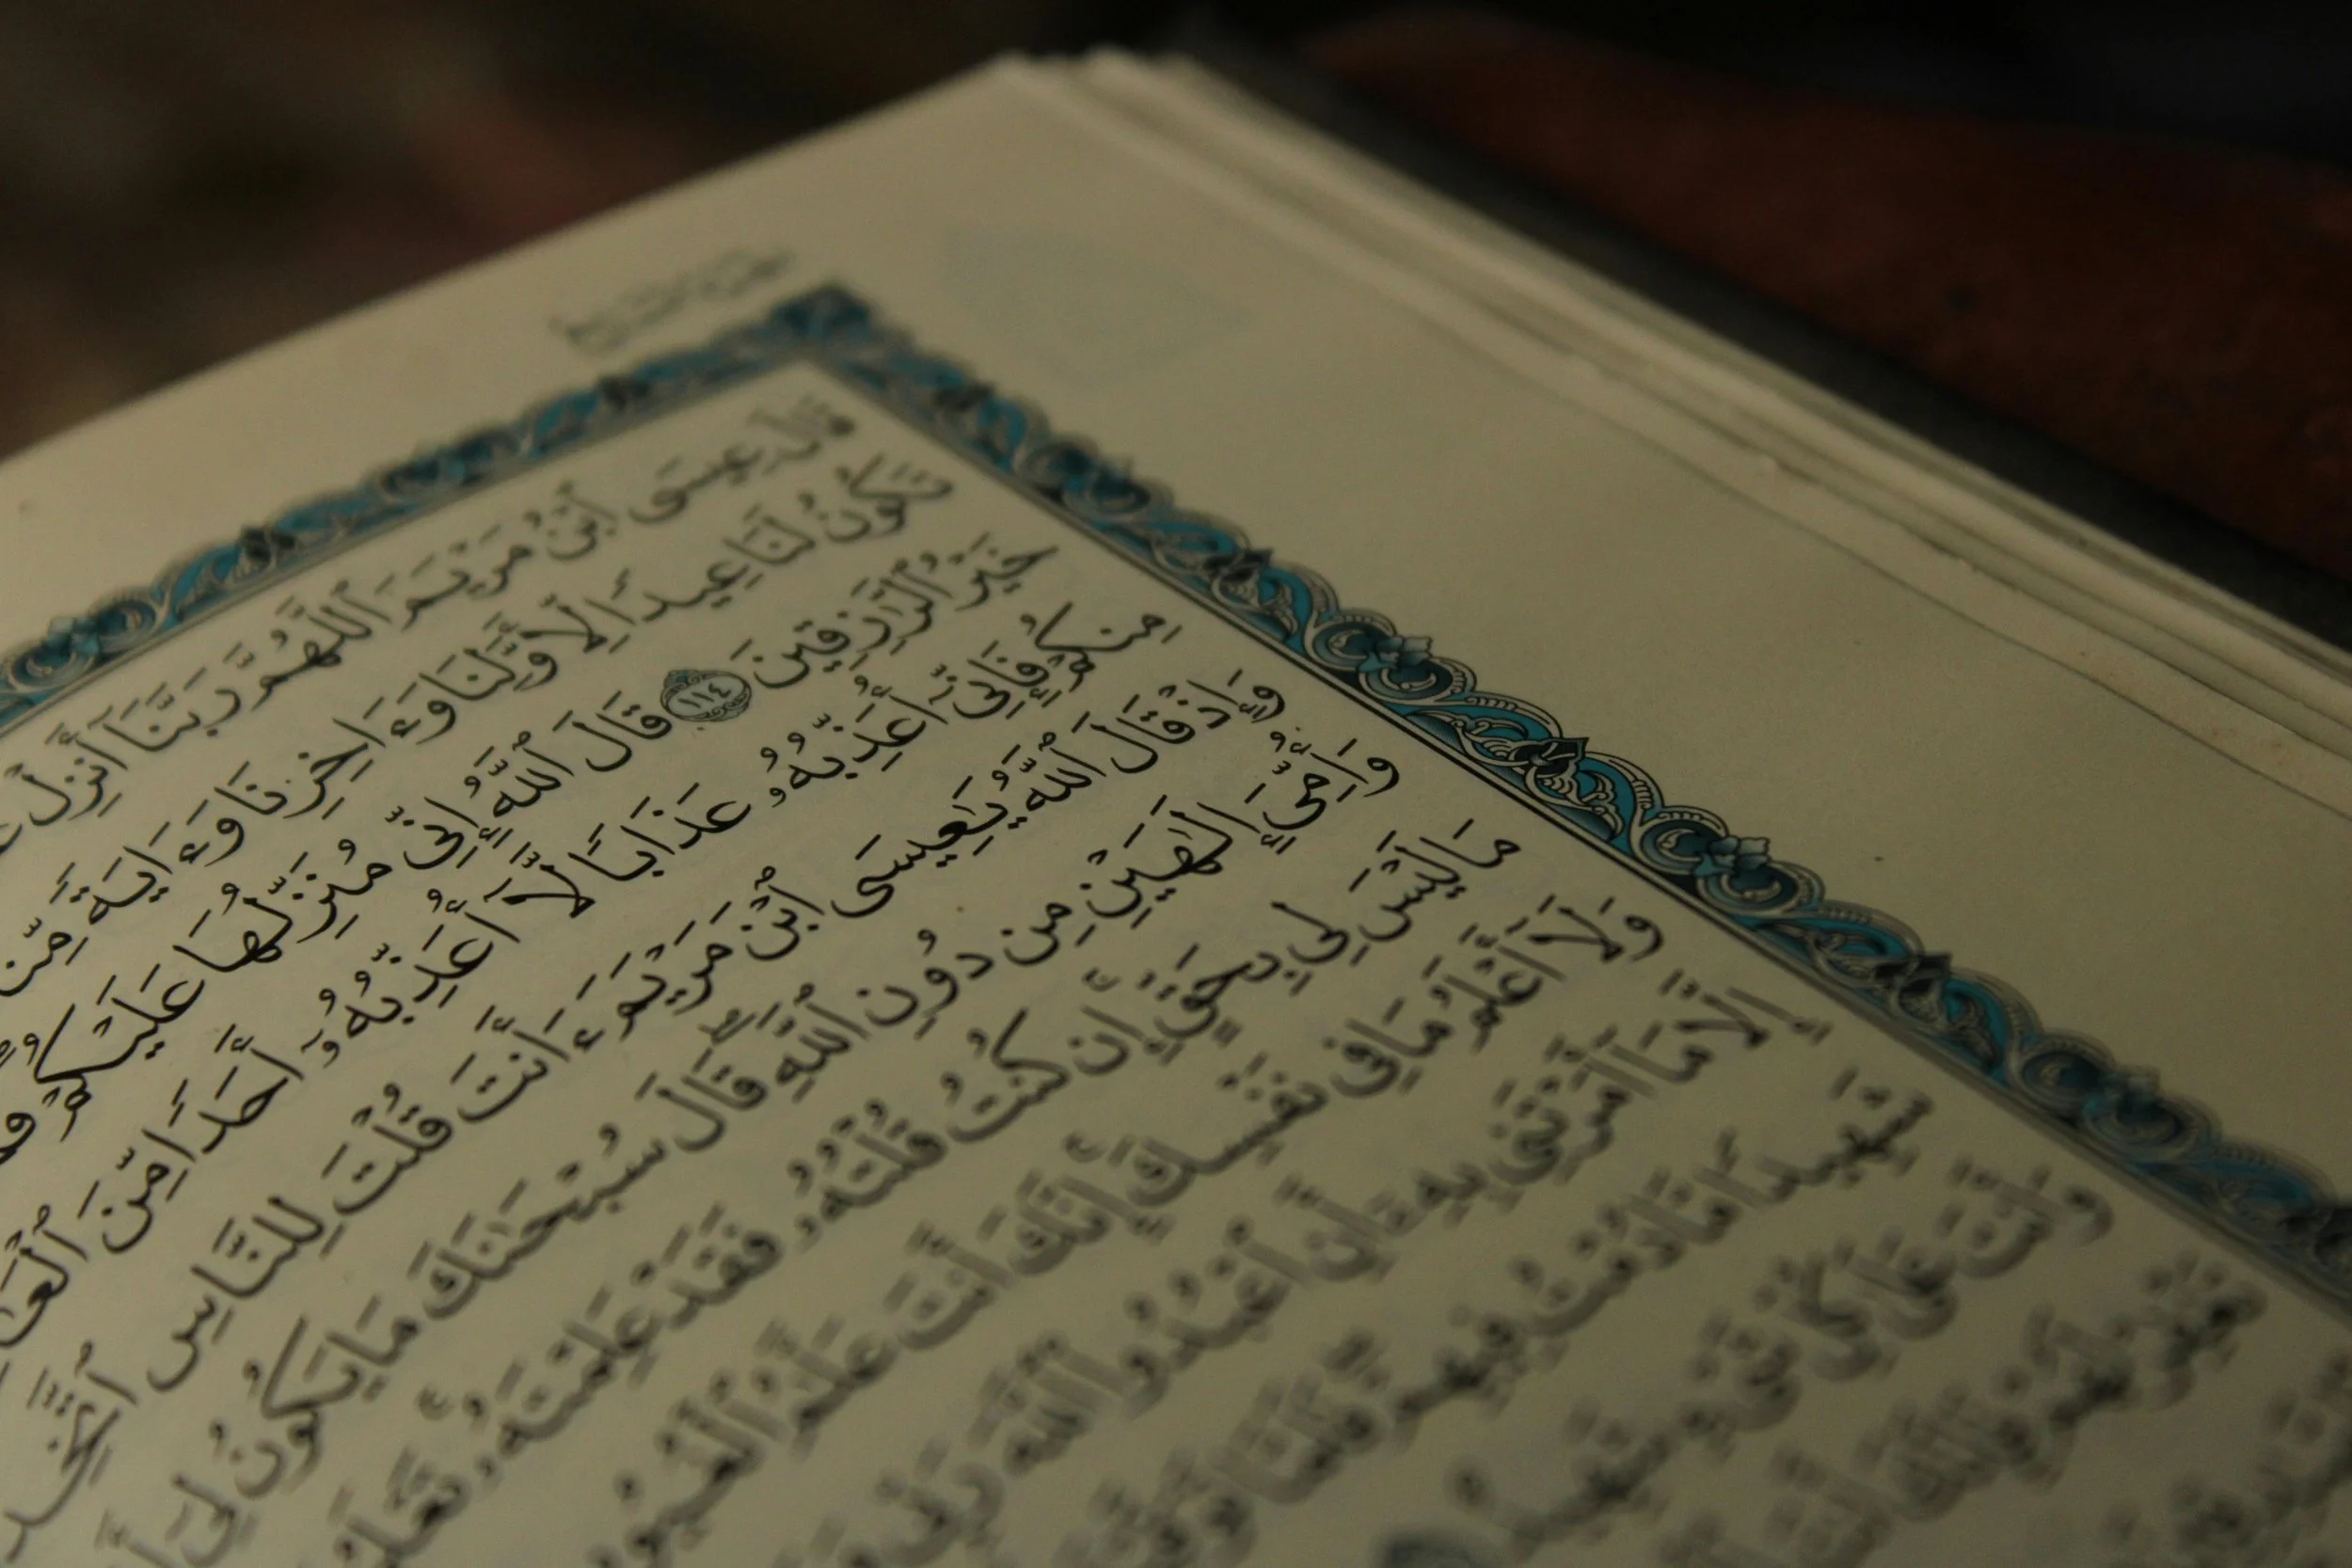 قَالَ عِيسَى ٱبْنُ مَرْيَمَ ٱللَّهُمَّ رَبَّنَآ أَنزِلْ
تَكُونُ لَنَا عِيدًا لِّأَوَّلِنَا وَءَاخِرِنَا وَءَايَةً مِّن
خَيْرُ ٱلرَّٰزِقِينَ ١١٤ قَالَ ٱللَّهُ إِنِّى مُنَزِّلُهَا عَلَيْكُمْ
مِنكُمْ فَإِنِّىٓ أُعَذِّبُهُۥ عَذَابًا لَّآ أُعَذِّبُهُۥٓ أَحَدًا مِّنَ
وَإِذْ قَالَ ٱللَّهُ يَٰعِيسَى ٱبْنَ مَرْيَمَ ءَأَنتَ قُلْتَ لِلنَّاسِ
وَأُمِّىَ إِلَٰهَيْنِ مِن دُونِ ٱللَّهِ ۖ قَالَ سُبْحَٰنَكَ مَا يَكُونُ لِىٓ
مَا لَيْسَ لِى بِحَقٍّ ۚ إِن كُنتُ قُلْتُهُۥ فَقَدْ عَلِمْتَهُۥ ۚ تَعْلَمُ
وَلَآ أَعْلَمُ مَا فِى نَفْسِكَ ۚ إِنَّكَ أَنتَ عَلَّٰمُ ٱلْغُيُوبِ
إِلَّا مَآ أَمَرْتَنِى بِهِۦٓ أَنِ ٱعْبُدُوا۟ ٱللَّهَ رَبِّى
شَهِيدًا مَّا دُمْتُ فِيهِمْ ۖ فَلَمَّا تَوَفَّيْتَنِى
وَأَنتَ عَلَىٰ كُلِّ شَىْءٍ شَهِيدٌ